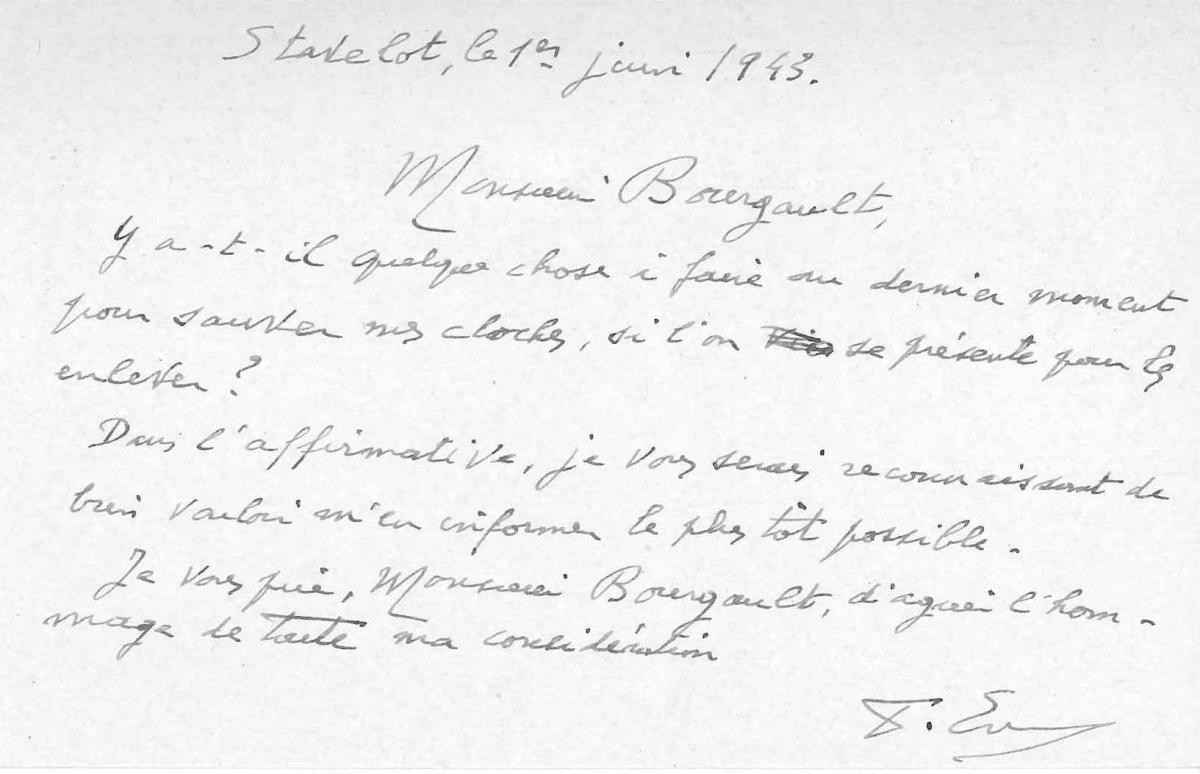 Stavelot, le 1er juin 1943.
Monsieur Bourgault,
Y a-t-il quelque chose à faire au dernier moment
pour sauver mes cloches, si l'on se présente pour les
enlever ?
Dans l'affirmative, je vous serais reconnaissant de
bien vouloir m'en informer le plus tôt possible.
Je vous prie, Monsieur Bourgault, d'agréer l'hom-
mage de toute ma considération